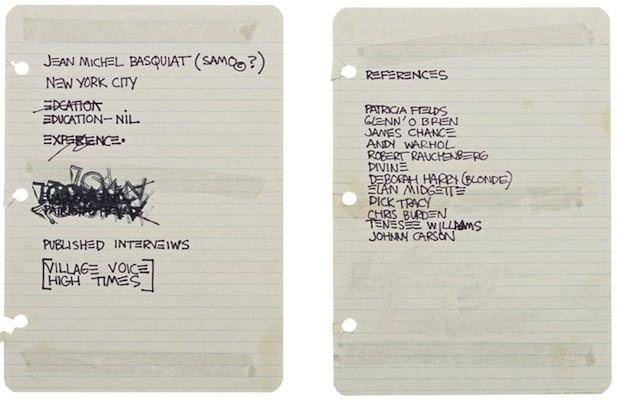 JEAN MICHEL BASQUIAT (SAMO© ?)
NEW YORK CITY
EDCATION
EDUCATION—NIL
EXPERIENCE.
PUBLISHED INTERVEIWS
[VILLAGE VOICE
HIGH TIMES]
REFERENCES
PATRICIA FIELDS
GLENN' O BRIEN
JAMES CHANCE
ANDY WARHOL
ROBERT RAUCHENBERG
DIVINE
DEBORAH HARRY (BLONDE)
ELAN MIDGETTE
DICK TRACY
CHRIS BURDEN
TENESEE WILLIAMS
JOHNNY CARSON